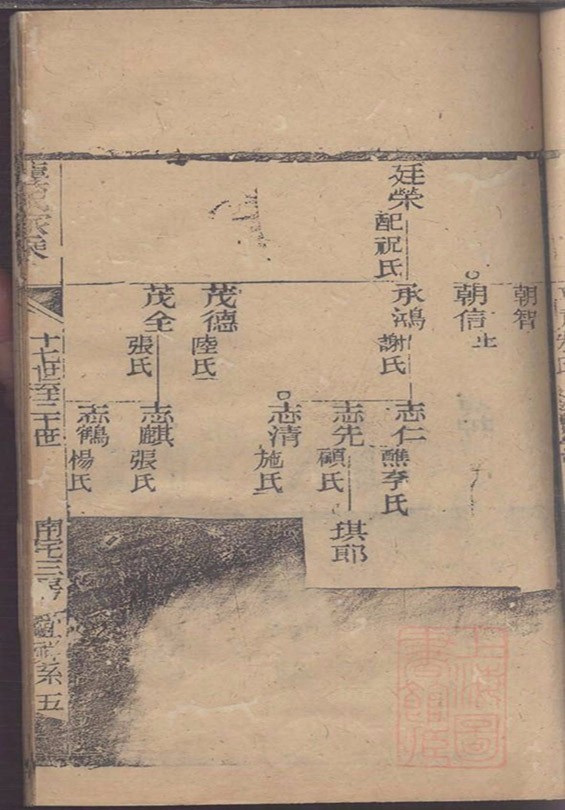 朝智
朝信 止
廷榮 配祝氏
承鴻 謝氏
茂德 陸氏
茂全 張氏
志仁 醮李氏
志先 顧氏
志清 施氏
志麒 張氏
志鶴 楊氏
琪耶
十七世至二十世
南宅三房
系五
上海圖書館藏